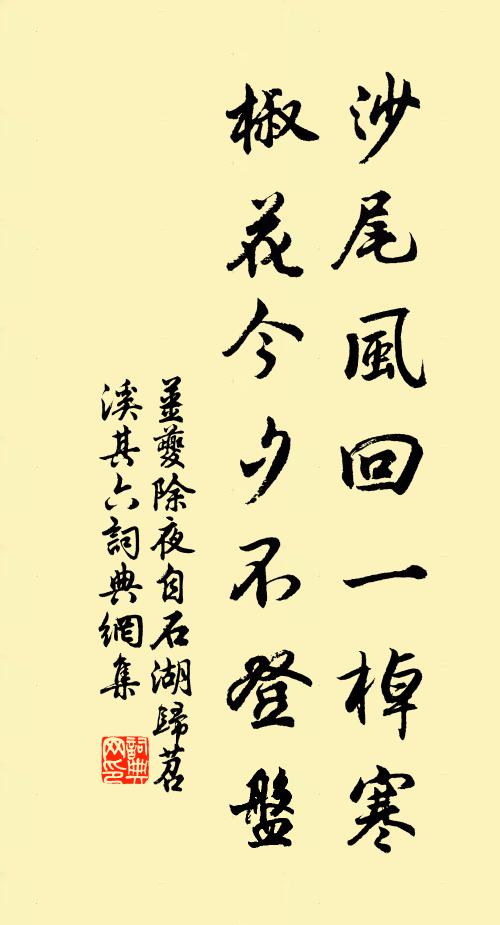 沙尾風回一棹寒
椒花今夕不登盤
姜夔除夜自石湖歸苕
溪其六詞典網集
詞典網印